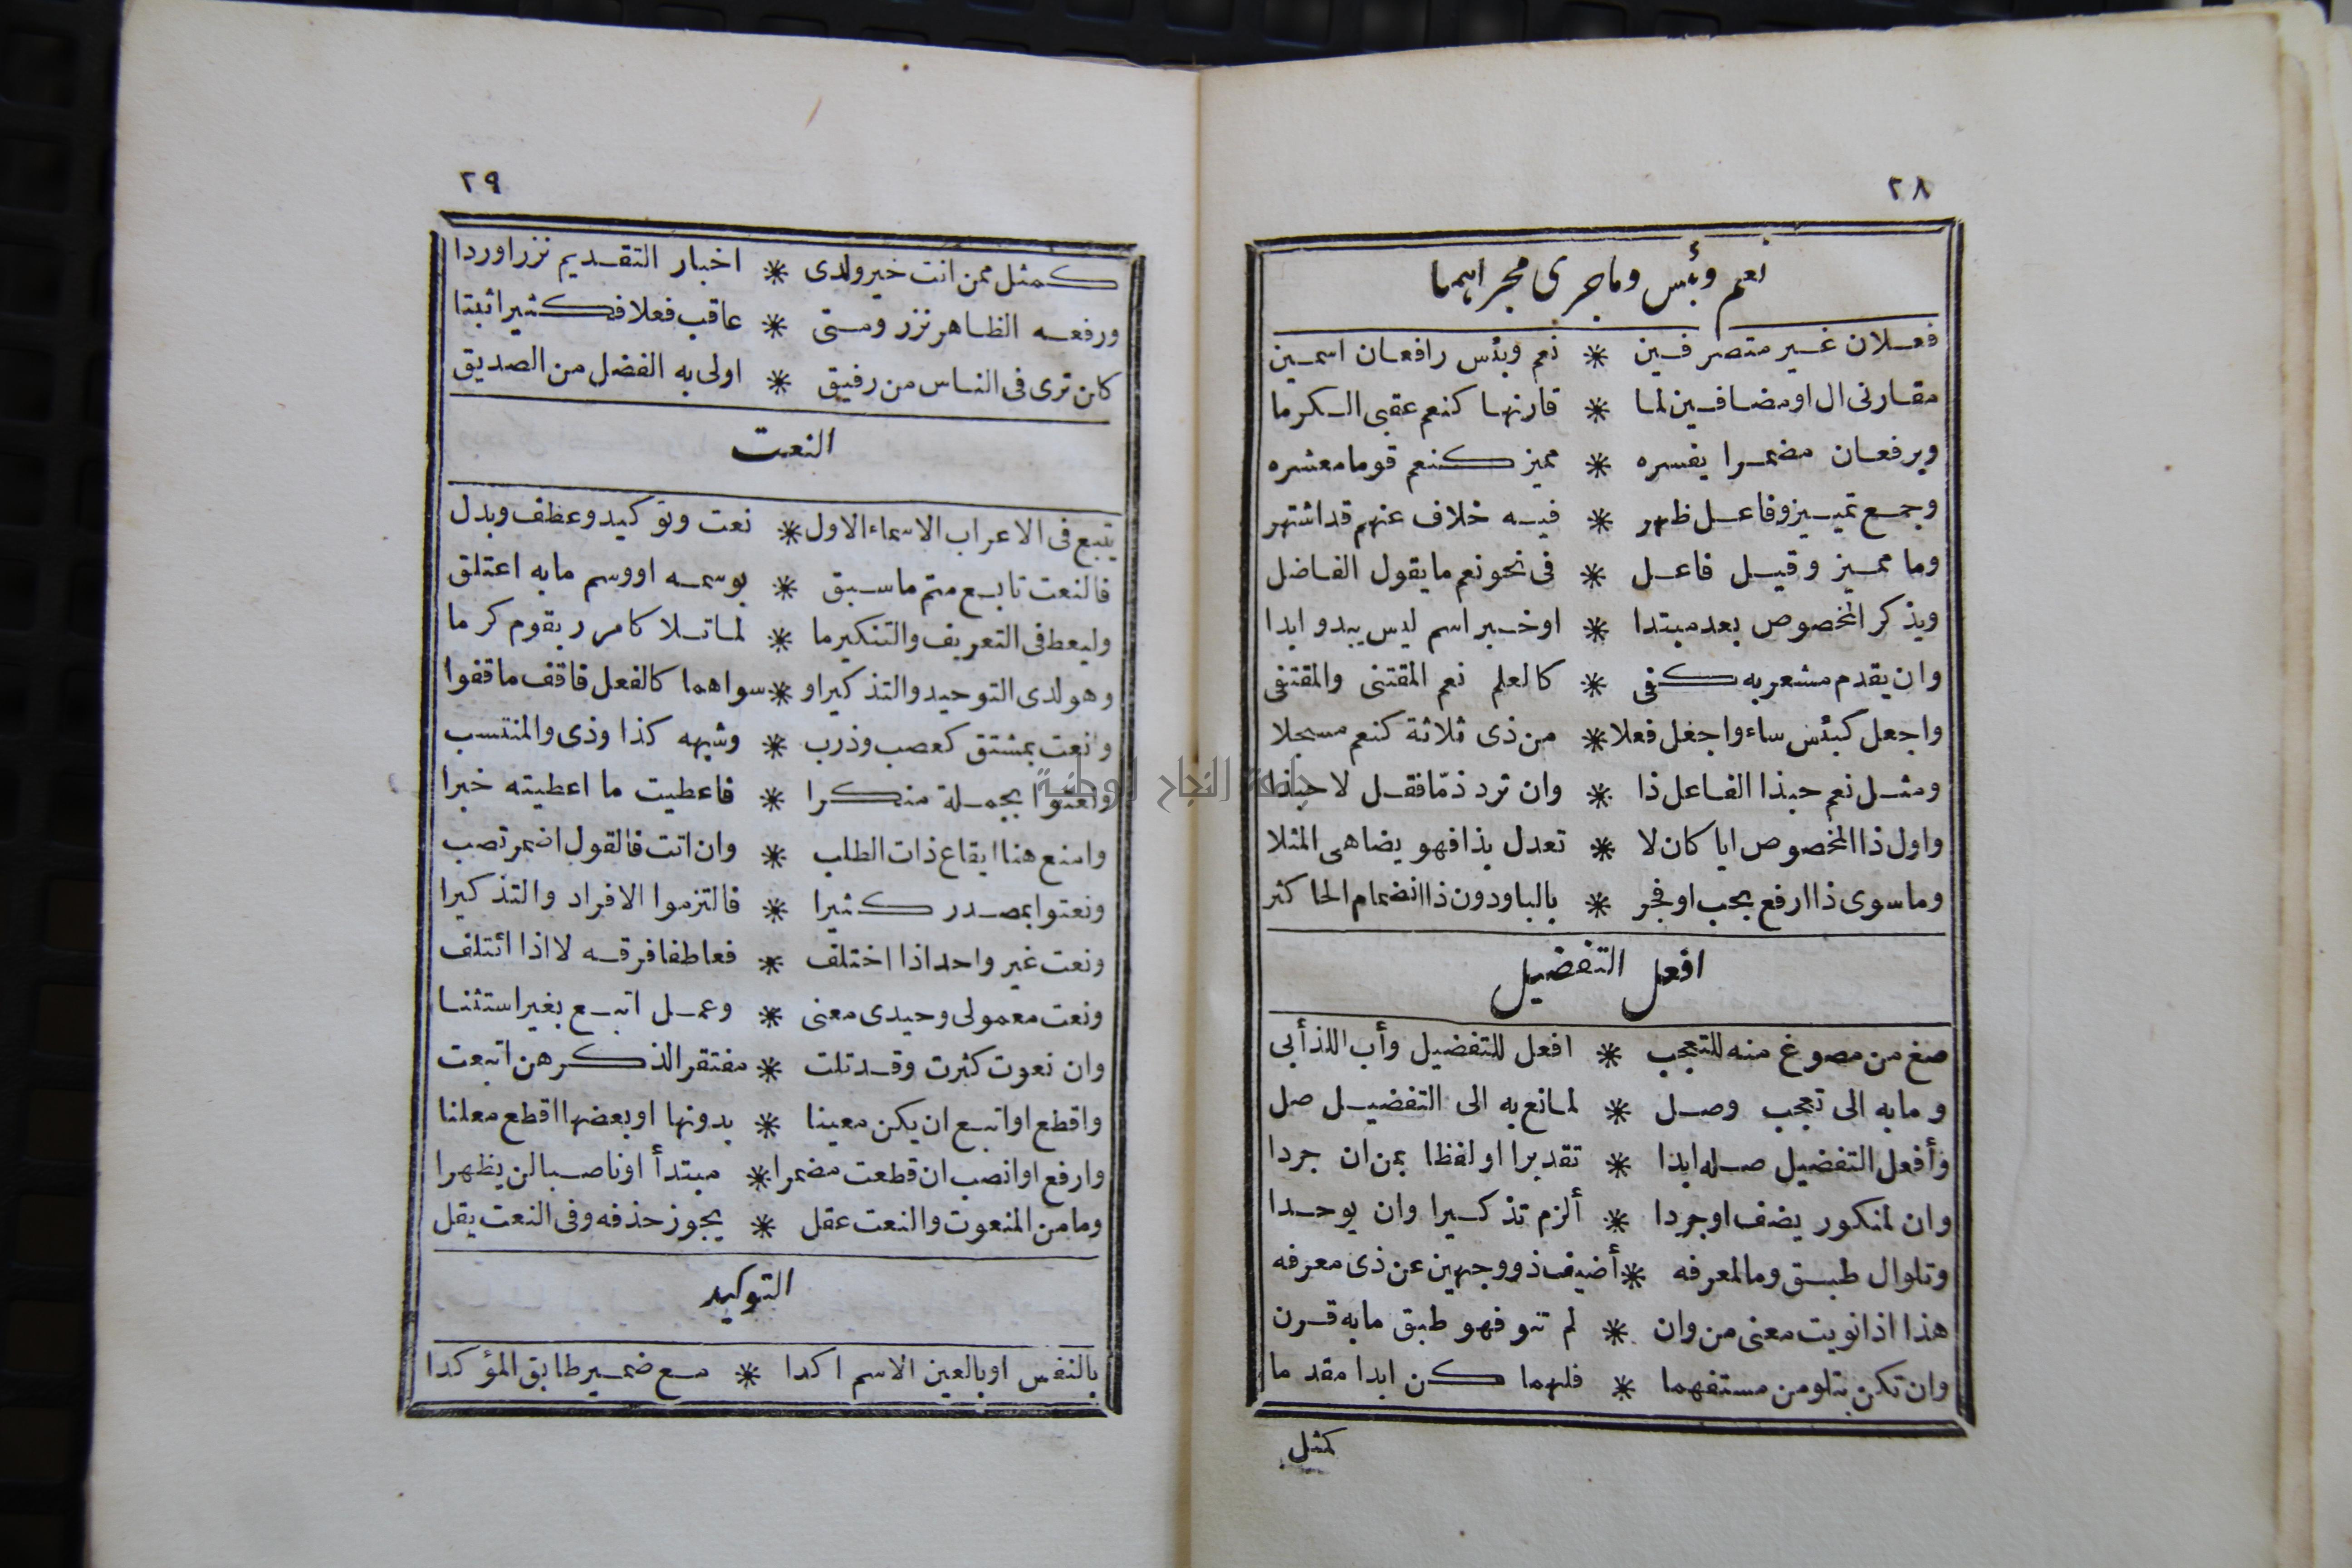 ٢٨
نعم وبئس وماجرى مجراهما
فعلان غير متصرفين * نعم وبئس رافعان اسمين
مقارنى ال اومضافين لما * قارنها كنعم عقبى الكرما
ويرفعان مضمرا يفسره * مميز كنعم قوما معشره
وجمع تمييز وفاعل ظهر * فيه خلاف عنهم قد اشتهر
وما مميز وقيل فاعل * فى نحو نعم ما يقول الفاضل
ويذكر المخصوص بعد مبتدا * اوخبر اسم ليس يبدو ابدا
وان يقدم مشعر به كفى * كالعلم نعم المقتنى والمقتفى
واجعل كبئس ساء واجعل فعلا * من ذى ثلاثة كنعم مسجلا
ومثل نعم حبذا الفاعل ذا * وان ترد ذمّا فقل لا حبذا
واول ذا المخصوص ايا كان لا * تعدل بذا فهو يضاهى المثلا
وما سوى ذا ارفع بحب اوفجر * بالبا ودون ذا انضمام الحا كثر
افعل التفضيل
صغ من مصوغ منه للتعجب * افعل للتفضيل وأب اللذ أبى
وما به الى تعجب وصل * لمانع به الى التفضيل صل
وأفعل التفضيل صله ابدا * تقديرا او لفظا بمن ان جردا
وان لمنكور يضف اوجردا * ألزم تذكيرا وان يوحدا
وتلوال طبق وما لمعرفه * أضيف ذو وجهين عن ذى معرفه
هذا اذا نويت معنى من وان * لم تنو فهو طبق ما به قرن
وان تكن بتلو من مستفهما * فلهما كن ابدا مقدما
كمثل
٢٩
كمثل ممن انت خير ولدى * اخبار التقديم نزرا وردا
ورفعه الظاهر نزر ومتى * عاقب فعلا فكثيرا ثبتا
كلن ترى فى الناس من رفيق * اولى به الفضل من الصديق
النعت
يتبع فى الاعراب الاسماء الاول * نعت وتوكيد وعطف وبدل
فالنعت تابع متم ما سبق * بوسمه او وسم ما به اعتلق
وليعط فى التعريف والتنكير ما * لما تلا كامرر بقوم كرما
وهو لدى التوحيد والتذكير او * سواهما كالفعل فاقف ما قفوا
وانعت بمشتق كصعب وذرب * وشبهه كذا وذى والمنتسب
ونعتوا بجملة منكرا * فاعطيت ما اعطيته خبرا
وامنع هنا ايقاع ذات الطلب * وان اتت فالقول اضمر تصب
ونعتوا بمصدر كثيرا * فالتزموا الافراد والتذكيرا
ونعت غير واحد اذا اختلف * فعاطفا فرقه لا اذا ائتلف
ونعت معمولى وحيدى معنى * وعمل اتبع بغير استثنا
وان نعوت كثرت وقد تلت * مفتقر الذكرهن اتبعت
واقطع او اتبع ان يكن معينا * بدونها او بعضها اقطع معلنا
وارفع او انصب ان قطعت مضمرا * مبتدأ او ناصبا لن يظهرا
وما من المنعوت والنعت عقل * يجوز حذفه وفى النعت يقل
التوكيد
بالنفس او بالعين الاسم اكدا * مع ضمير طابق المؤكدا
جامعة النجاح الوطنية